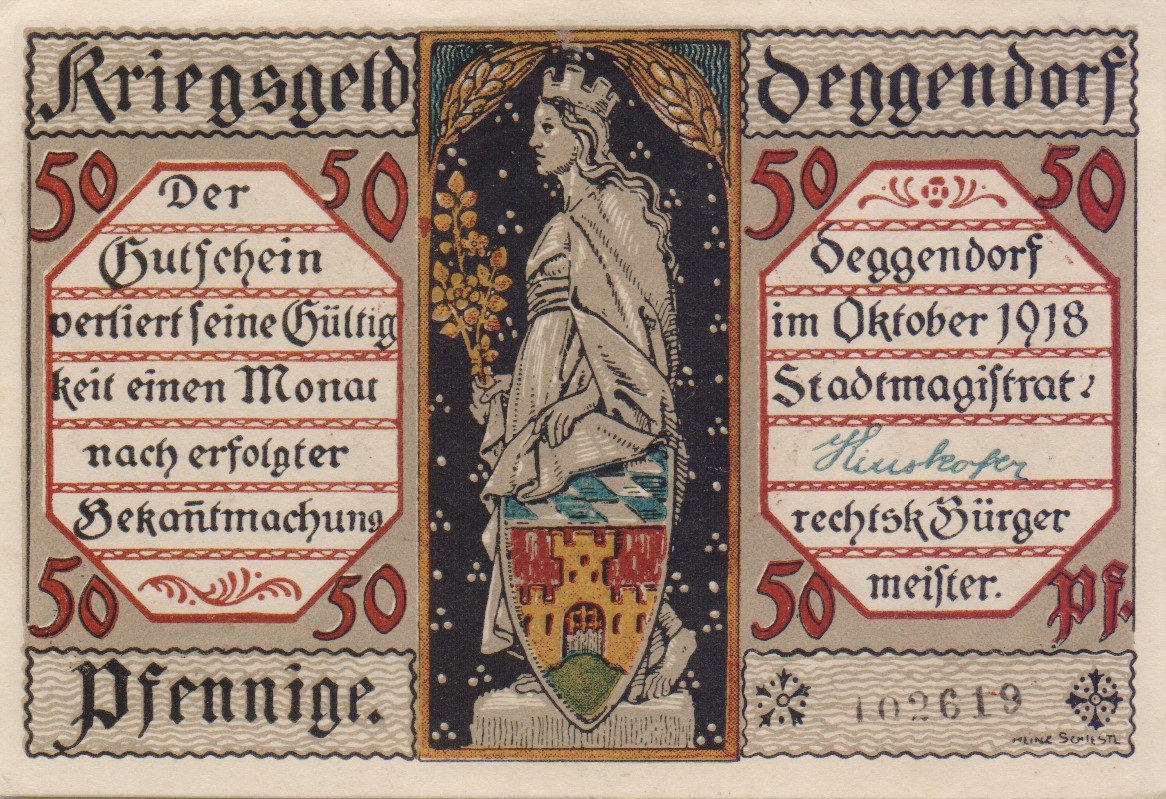 Kriegsgeld
Deggendorf
50 50
Der
Gutschein
verliert seine Gültig
keit einen Monat
nach erfolgter
Bekan̄tmachung
50 50
Pfennige.
50 50
Deggendorf
im Oktober 1918
Stadtmagistrat:
rechtsk Bürger
meister.
50 Pf.
102619
HEINZ SCHIESTL